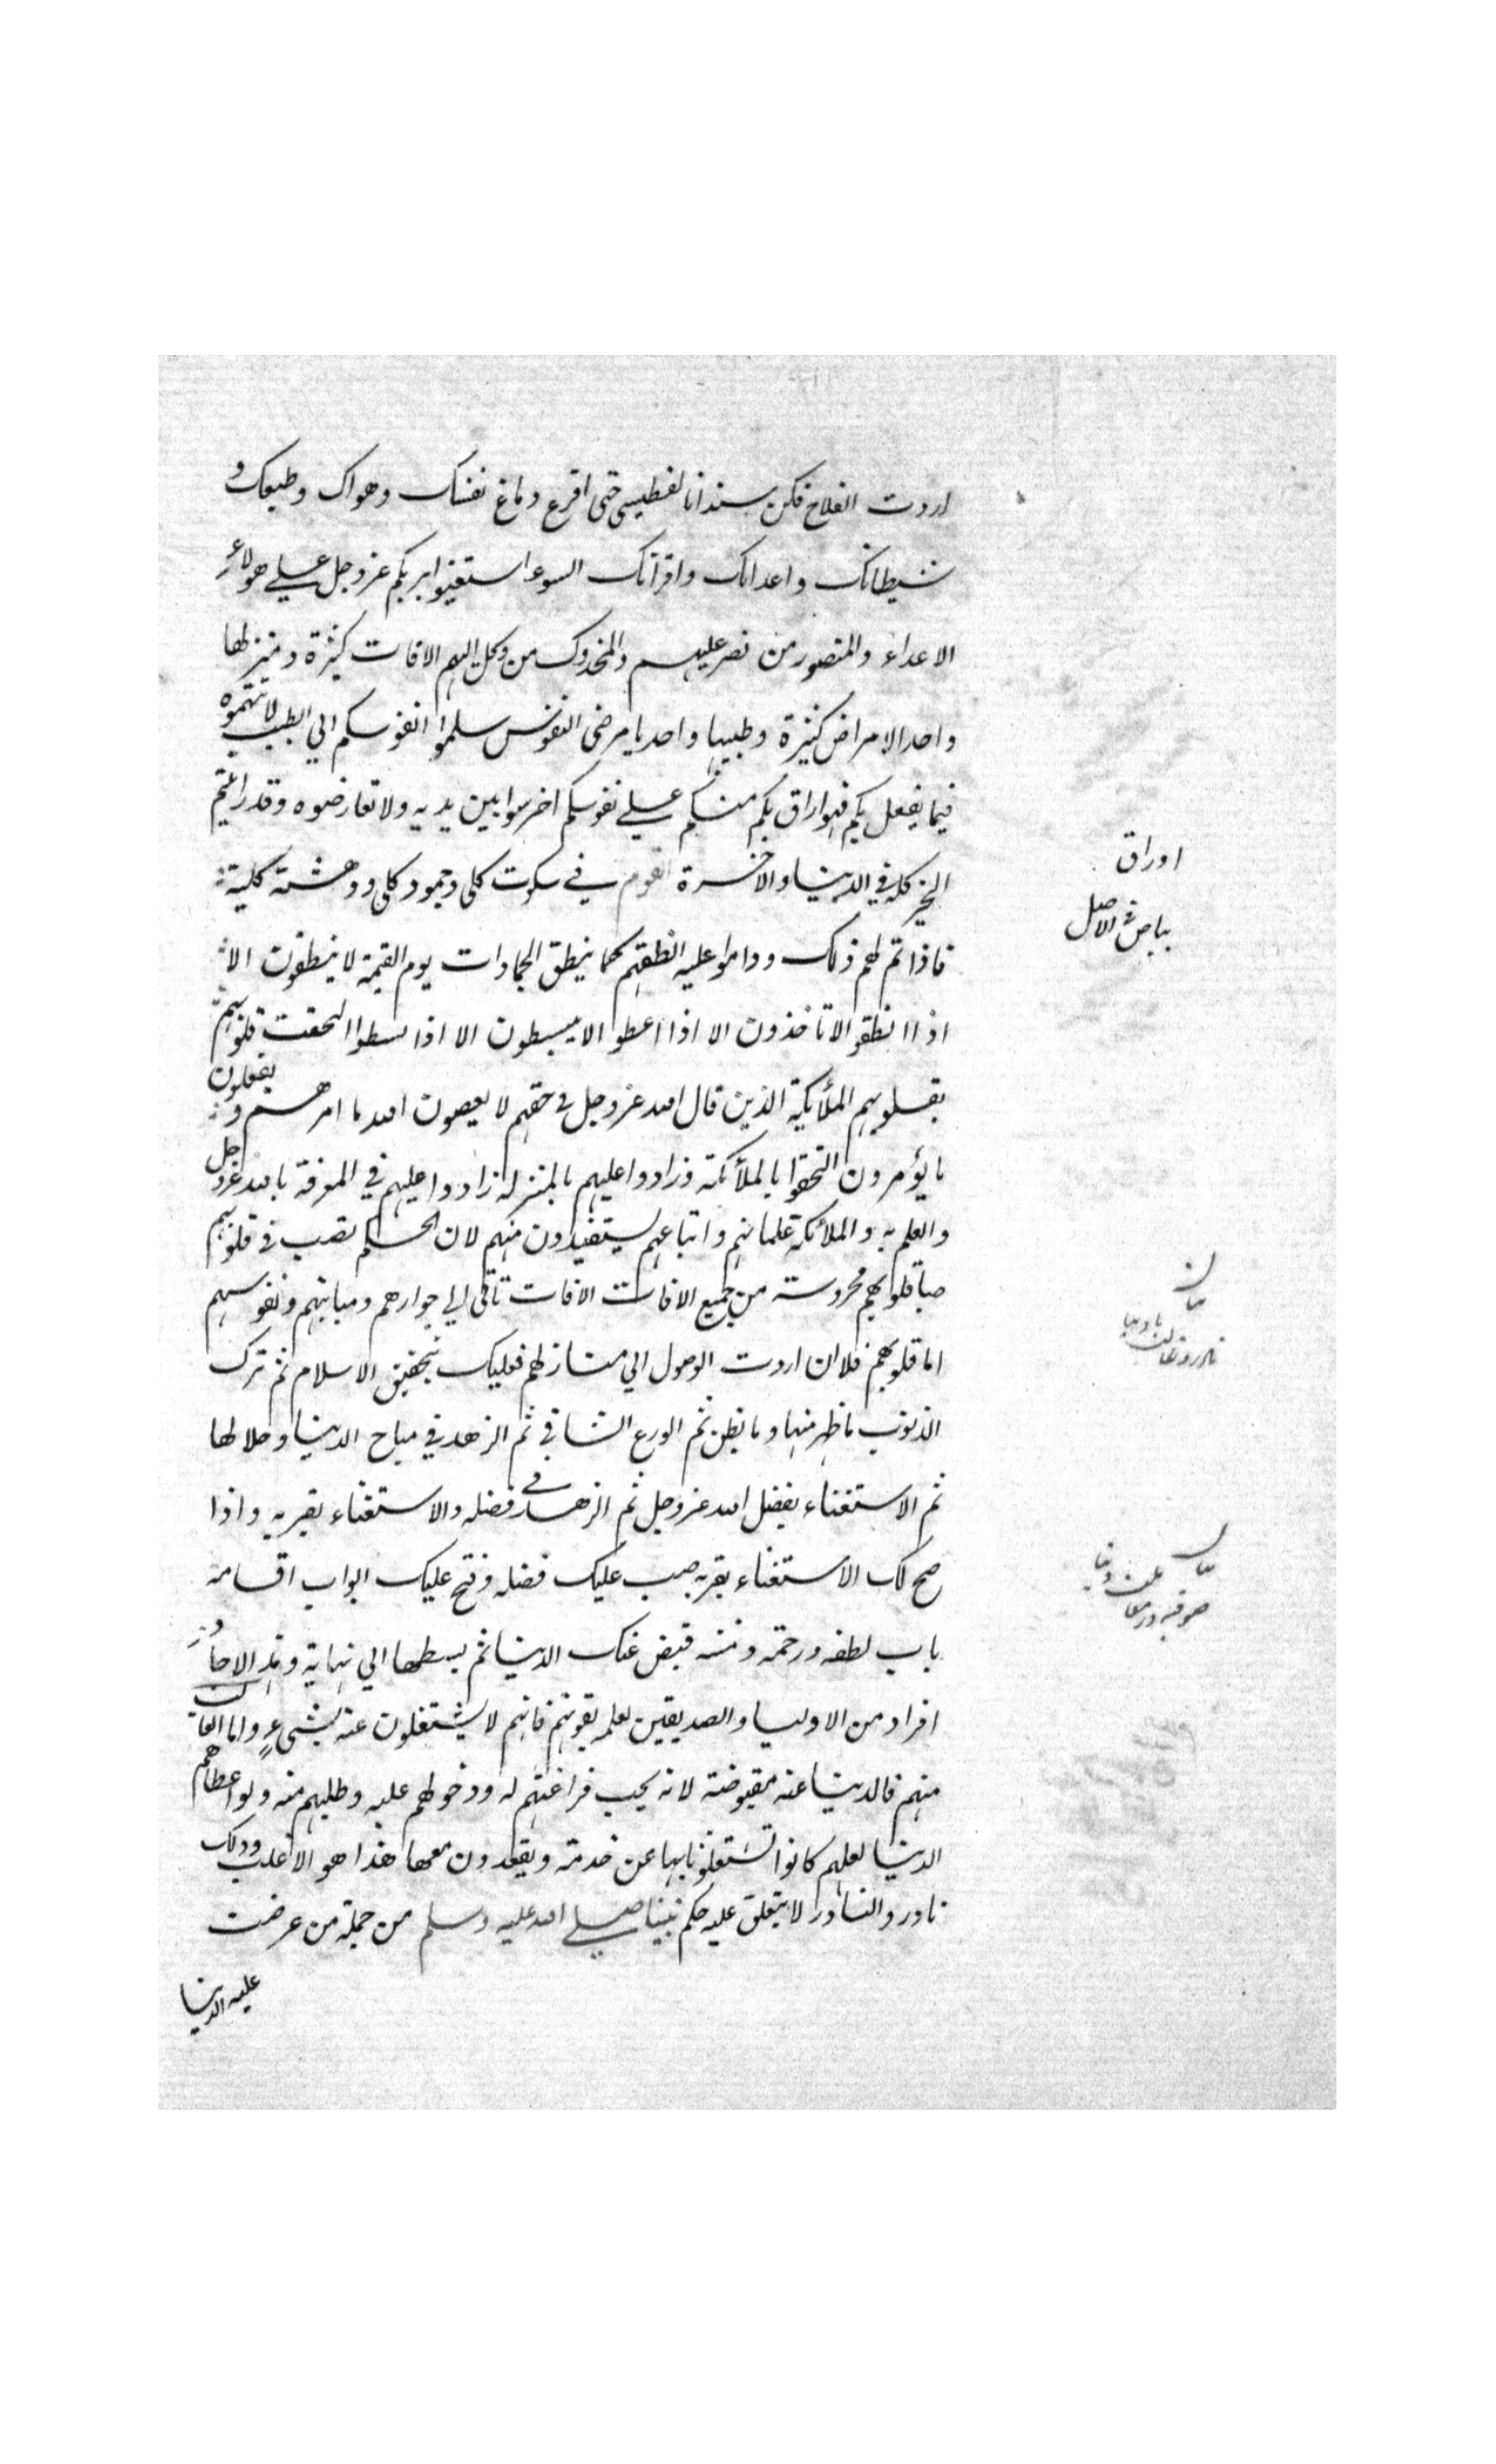 اردت الفلاح فكن سندانا لفطيسى حتى اقرع دماغ نفسك وهواك وطبعك و
شيطانك واعدائك واقرانك السوء استعينوا بربكم عز وجل على هولاء
الاعداء والمنصور من نصر عليهم والمخذول من وكل اليهم الافات كثيرة ومنزلها
واحد الامراض كثيرة وطبيبها واحد يا مرضى النفوس سلموا انفوسكم الي الطبيب لا تتهموه
فيما يفعل بكم فهو اراق بكم منكم على نفوسكم اخرسوا بين يديه ولا تعارضوه وقد رايتم
الخير كله في الدنيا والاخرة القوم في سكوت كلى وجمود كلى ودهشة كلية
فاذا تم لهم ذلك وداموا عليه انطقهم كما ينطق الجمادات يوم القيمة لا ينطقون الا
اذا انطقوا لا تاخذون الا اذا اعطوا لا يبسطون الا اذا بسطوا التحقت قلوبهم
بقلوبهم الملائكة الذين قال الله عز وجل في حقهم لا يعصون الله ما امرهم ويفعلون
ما يؤمرون التحقوا بالملائكة وزادوا عليهم بالمنزلة زادوا عليهم في المعرفة بالله عز وجل
والعلم به والملائكة غلمانهم واتباعهم يستفيدون منهم لان الحكم تصب في قلوبهم
صبا قلوبهم محروسة من جميع الافات الافات تاتى الي جوارحهم ومبانيهم ونفوسهم
اما قلوبهم فلا ان اردت الوصول الي منازلهم فعليك بتحقيق الاسلام ثم ترك
الذنوب ما ظهر منها وما بطن ثم الورع الشافي ثم الزهد في مباح الدنيا وحلالها
ثم الاستغناء بفضل الله عز وجل ثم الزهد في فضله والاستغناء بقربه واذا
صح لك الاستغناء بقربه صب عليك فضله وفتح عليك ابواب اقسامه
باب لطفه ورحمته ومنه قبض عنك الدنيا ثم بسطها الي نهاية وهذا لاحاد
افراد من الاوليا والصديقين لعلمه بقوتهم فانهم لا يشتغلون عنه بشيء واما الغالب
منهم فالدنيا عنه مقبوضة لانه يحب فراغتهم له ودخولهم عليه وطلبهم منه ولو اعطاهم
الدنيا لعلهم كانوا تشتغلوا بها عن خدمته ويقعدون معها هذا هو الاغلب وذلك
نادر والنادر لا يتعلق عليه حكم نبينا صلى الله عليه وسلم من جملة من عرضت
عليه الدنيا
اوراق
بياض في الاصل